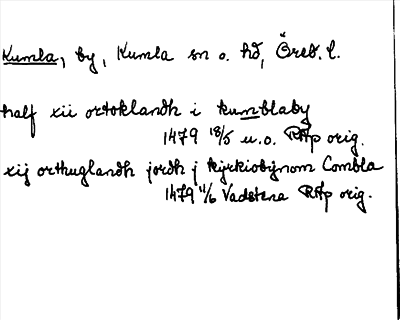 Kumla, by, Kumla sn o. hd, Öreb. l.
half xii ortoklandh i kumblaby
1479 18/5 u.o. RAp orig.
xij orthuglandh jordh j kyrkiobynom Combla
1479 11/6 Vadstena RAp orig.